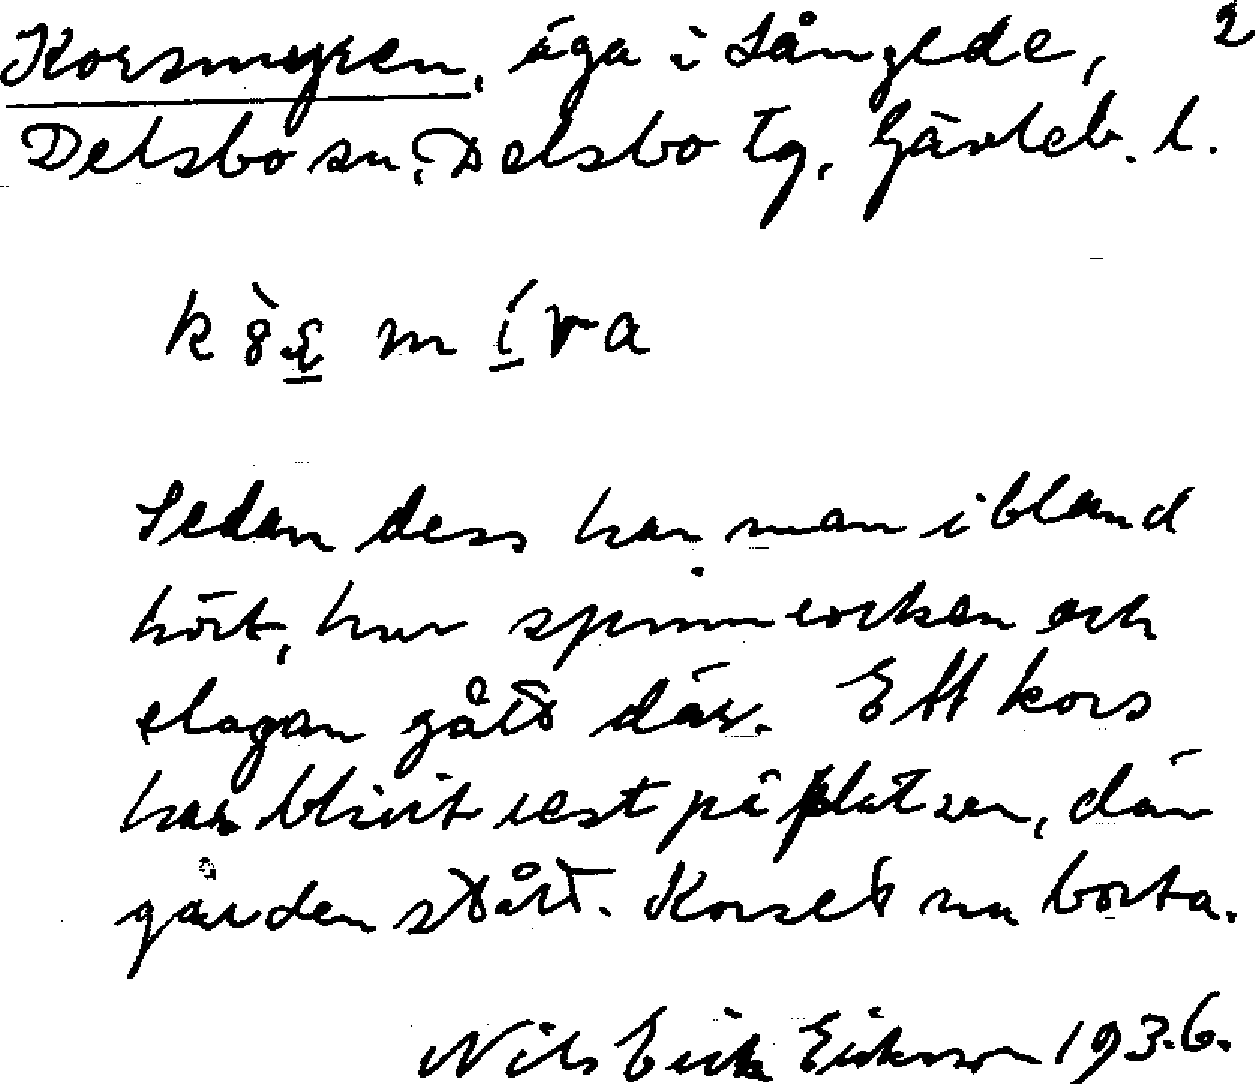 Korsmyren, äga i Långede, 2
Delsbo sn, Delsbo tg, Gävleb. l.
Sedan dess har man ibland
hört, hur spinnrocken och
slagan gått där. Ett kors
har blivit rest på platsen, där
gården stått. Korset nu borta.
Nils Erik Eriksson 1936.